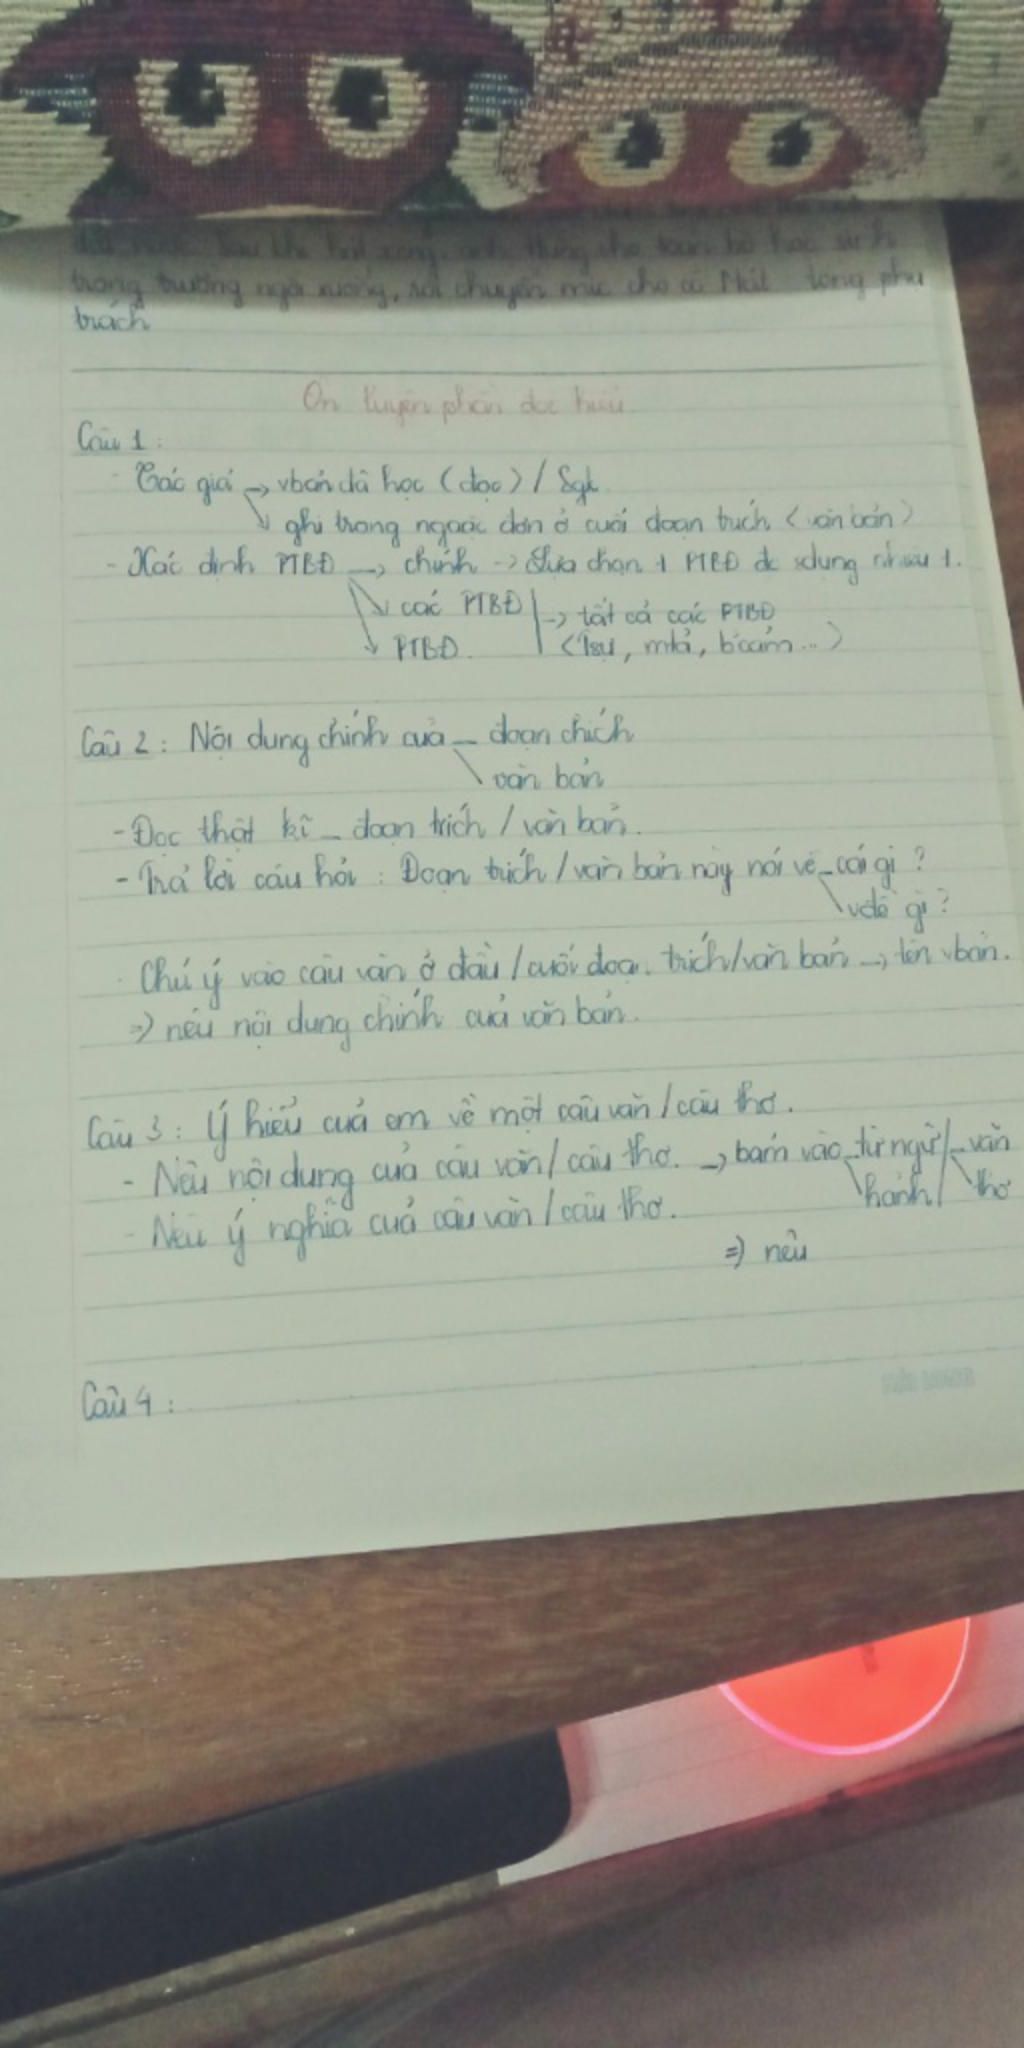 trong trường ngồi xuống, rồi chuyển mic cho cô tổng phụ
trách
Ôn luyện phần đọc hiểu
Câu 1:
- Tác giả → vbản đã học (đọc) / Sgk
↘ ghi trong ngoặc đơn ở cuối đoạn trích (văn bản)
- Xác định PTBĐ → chính → lựa chọn 1 PTBĐ đc sdụng nhiều 1.
↘ các PTBĐ → tất cả các PTBĐ
↘ PTBĐ (Tsự, mtả, b'cảm...)
Câu 2: Nội dung chính của – đoạn chích
\ văn bản
- Đọc thật kĩ – đoạn trích / văn bản.
- Trả lời câu hỏi: Đoạn trích / văn bản này nói về – cái gì?
\ vđề gì?
- Chú ý vào câu văn ở đầu / cuối đoạn trích / văn bản → tên vbản.
⇒ nêu nội dung chính của văn bản.
Câu 3: Ý hiểu của em về một câu văn / câu thơ.
- Nêu nội dung của câu văn / câu thơ. → bám vào – từ ngữ / – văn
\ hảnh / \ thơ
- Nêu ý nghĩa của câu văn / câu thơ.
⇒ nêu
Câu 4: